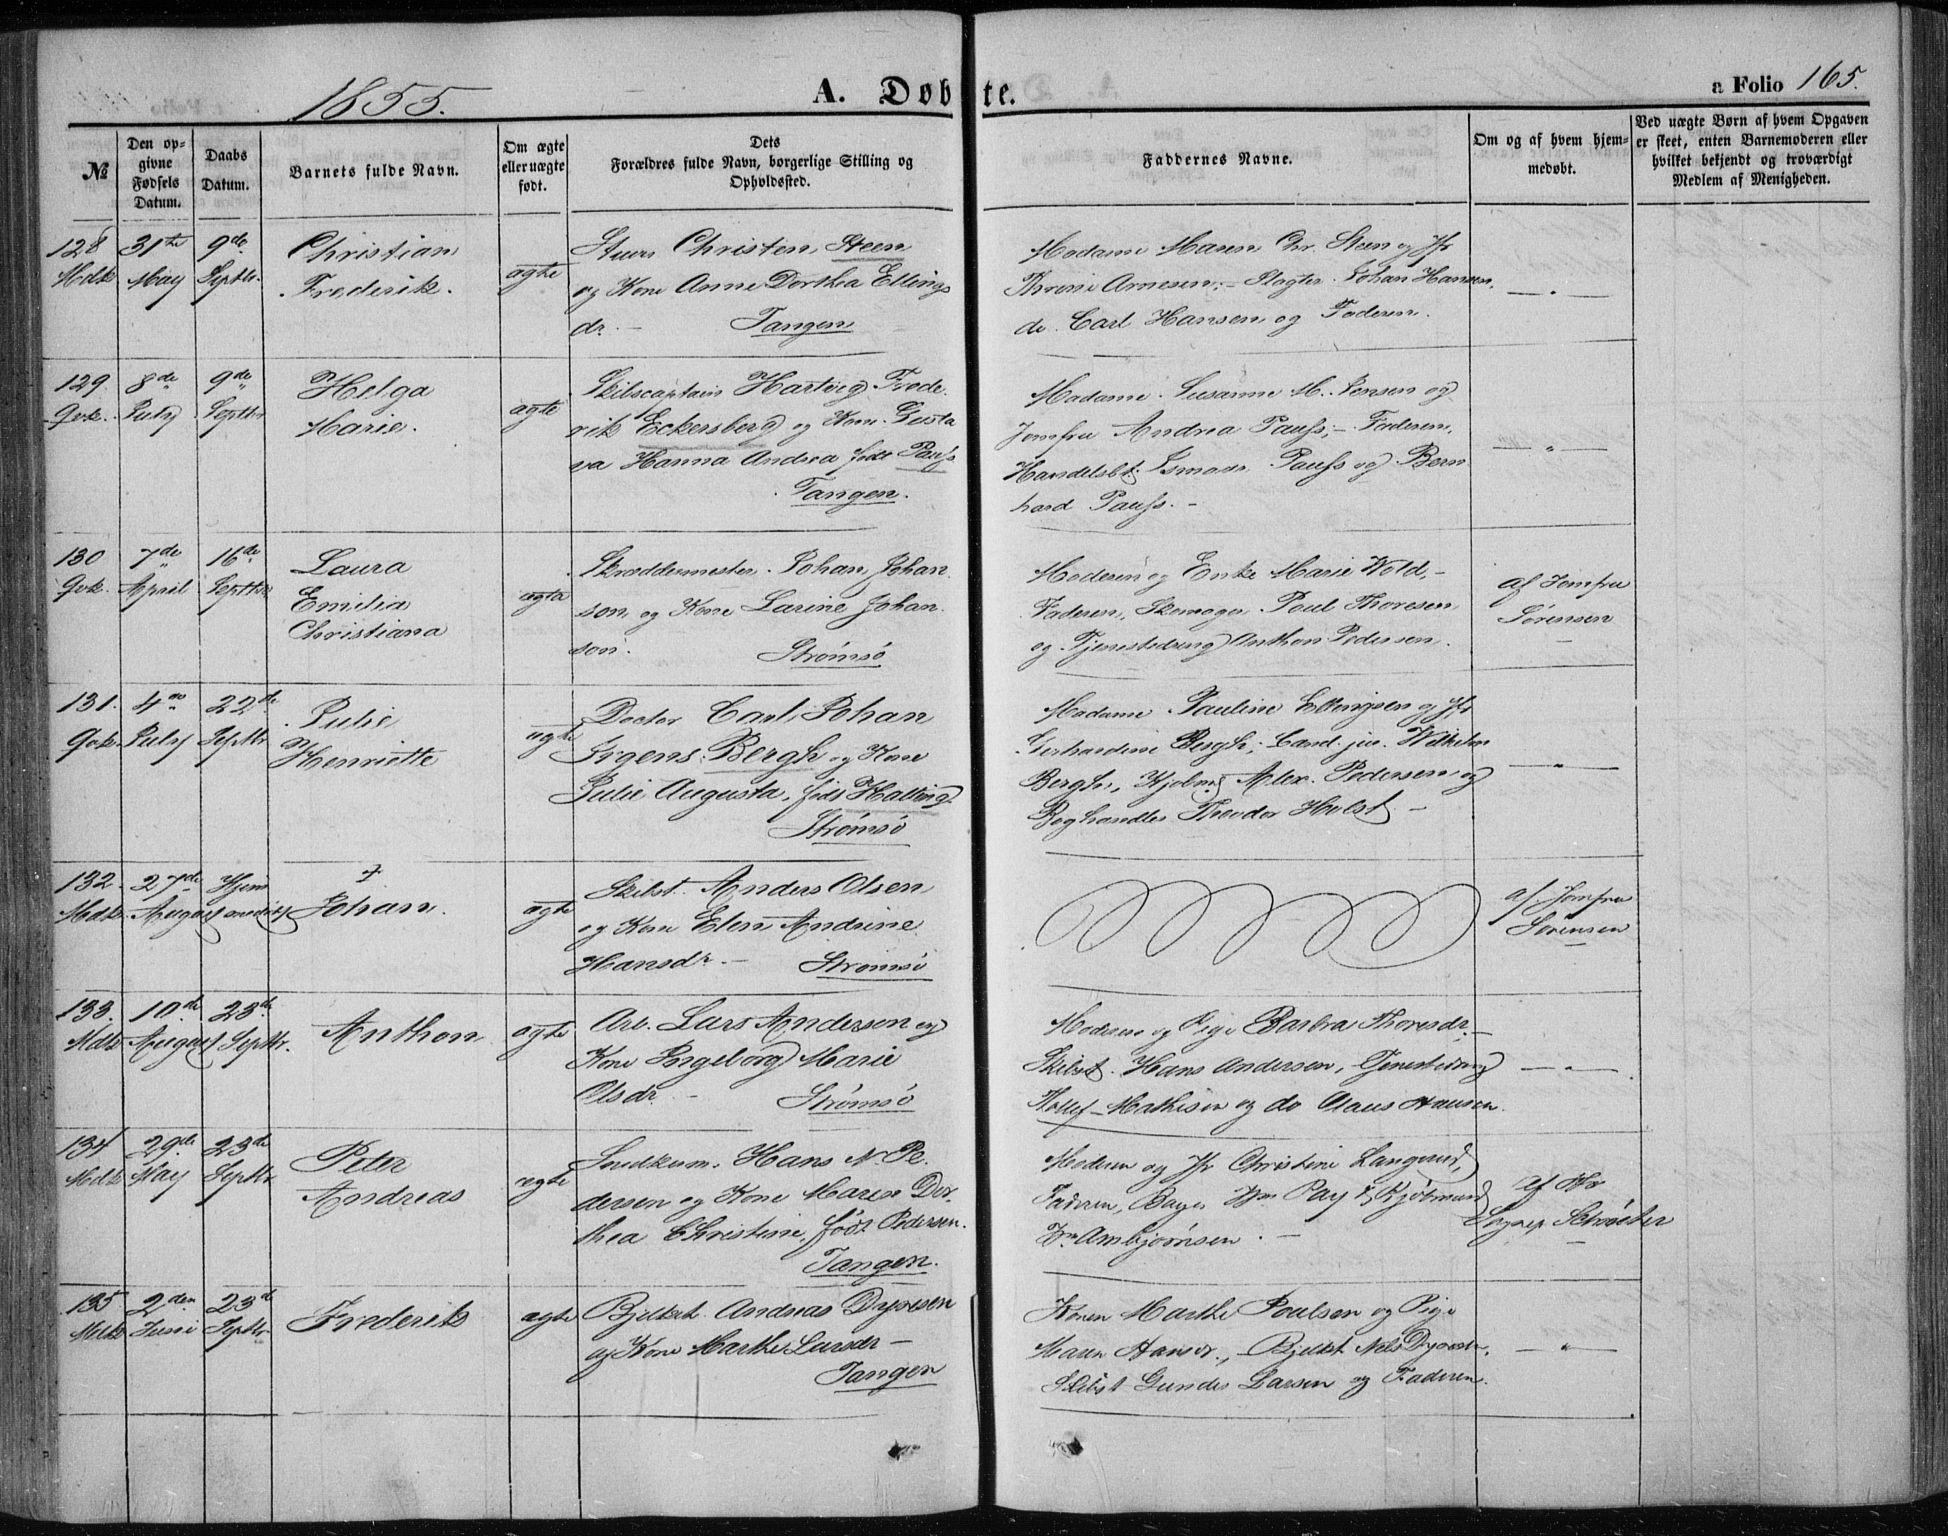 1855.
A. Døbte.
a Folio 165.
№
Den op-
givne
Fødsels
Datum.
Daabs
Datum.
Barnets fulde Navn.
Om ægte
eller uægte
født.
Dets
Forældres fulde Navn, borgerlige Stilling og
Opholdssted.
Faddernes Navne.
Om og af hvem hjem-
medøbt.
Ved uægte Børn af hvem Opgaven
er skeet, enten Barnemoderen eller
hvilket bekjendt og troværdigt
Medlem af Menigheden.
128
Mdk
31te
May
9de
Septbr.
Christian
Frederik.
ægte
Christen Steen
og Kone Anne Dorthea Ellings
dr. - Tangen
Madame Maren Chr. Steen og Jfr
Thrine Arnesen; - Slagter Johan Hansen,
do. Carl Hansen og Faderen.
129.
Qvk.
8de
July
9de
Septbr
Helga
Marie.
ægte
Skibscaptain Hartvig Frede
rik Eckersberg og Kone Gusta
va Hanna Andrea født Pauss
Tangen.
Madame Susanne M. Jensen og
Jomfru Andrea Pauss; - Faderen,
Handelsbt. Ismar Pauss og Bern
hard Pauss. -
130
Qvk.
7de
April
16de
Septbr
Laura
Emilia
Christiana
ægte
Skræddermester Johan Johan
son og Kone Larine Johan
son. Strømsø
Moderen og Enke Marie Wold, -
Faderen, Skomager Poul Thoresen
og Tjenestedreng Anthon Pedersen.
af Jomfru
Sørensen
131.
Qvk.
4de
July
22de
Septbr
Julie
Henriette
ægte
Doctor Carl Johan
Irgens Bergh og Kone
Julie Augusta, født Halling
Strømsø
Madame Pauline Ellingsen og Jfr
Gerhardine Bergh; Cand. jur. Wilhelm
Bergh, Kjøbmd Alex. Pedersen og
Boghandler Theodor Holst -
132.
Mdk.
27de
August
Hjem
medøbt
†
Johan.
ægte
Skibst. Anders Olsen
og Kone Elen Andrine
Hansdr. - Strømsø
af Jomfru
Sørensen
133.
Mdk
10de
August
23de
Septbr.
Anthon
ægte
Arb. Lars Andersen og
Kone Ingeborg Marie
Olsdr. - Strømsø
Moderen og Pige Barbra Thoresdr. -
Skibst. Hans Andersen, Tjenestedreng
Rollef Mathisen og do Claus Hansen.
134
Mdk
29de
May
23de
Septbr
Peter
Andreas
ægte
Snedkerm. Hans N. Pe
dersen og Kone Maren Dor
thea Christine, født Pedersen.
Tangen.
Moderen og Jfr Christine Langerud,
Faderen, Bager Pay & Kjøbmand
Ambjørnsen. -
af Hr
Schrøeter
135
Mdk
2den
Juni
23de
Septbr.
Frederik
ægte
Bjelkst. Andreas Dyresen
og Kone Marthe Larsdr -
Tangen
Konen Marthe Poulsen og Pige
Maren Hansdr., - Bjelkst Nels Dyresen,
Skibst Gunder Larsen og Faderen.